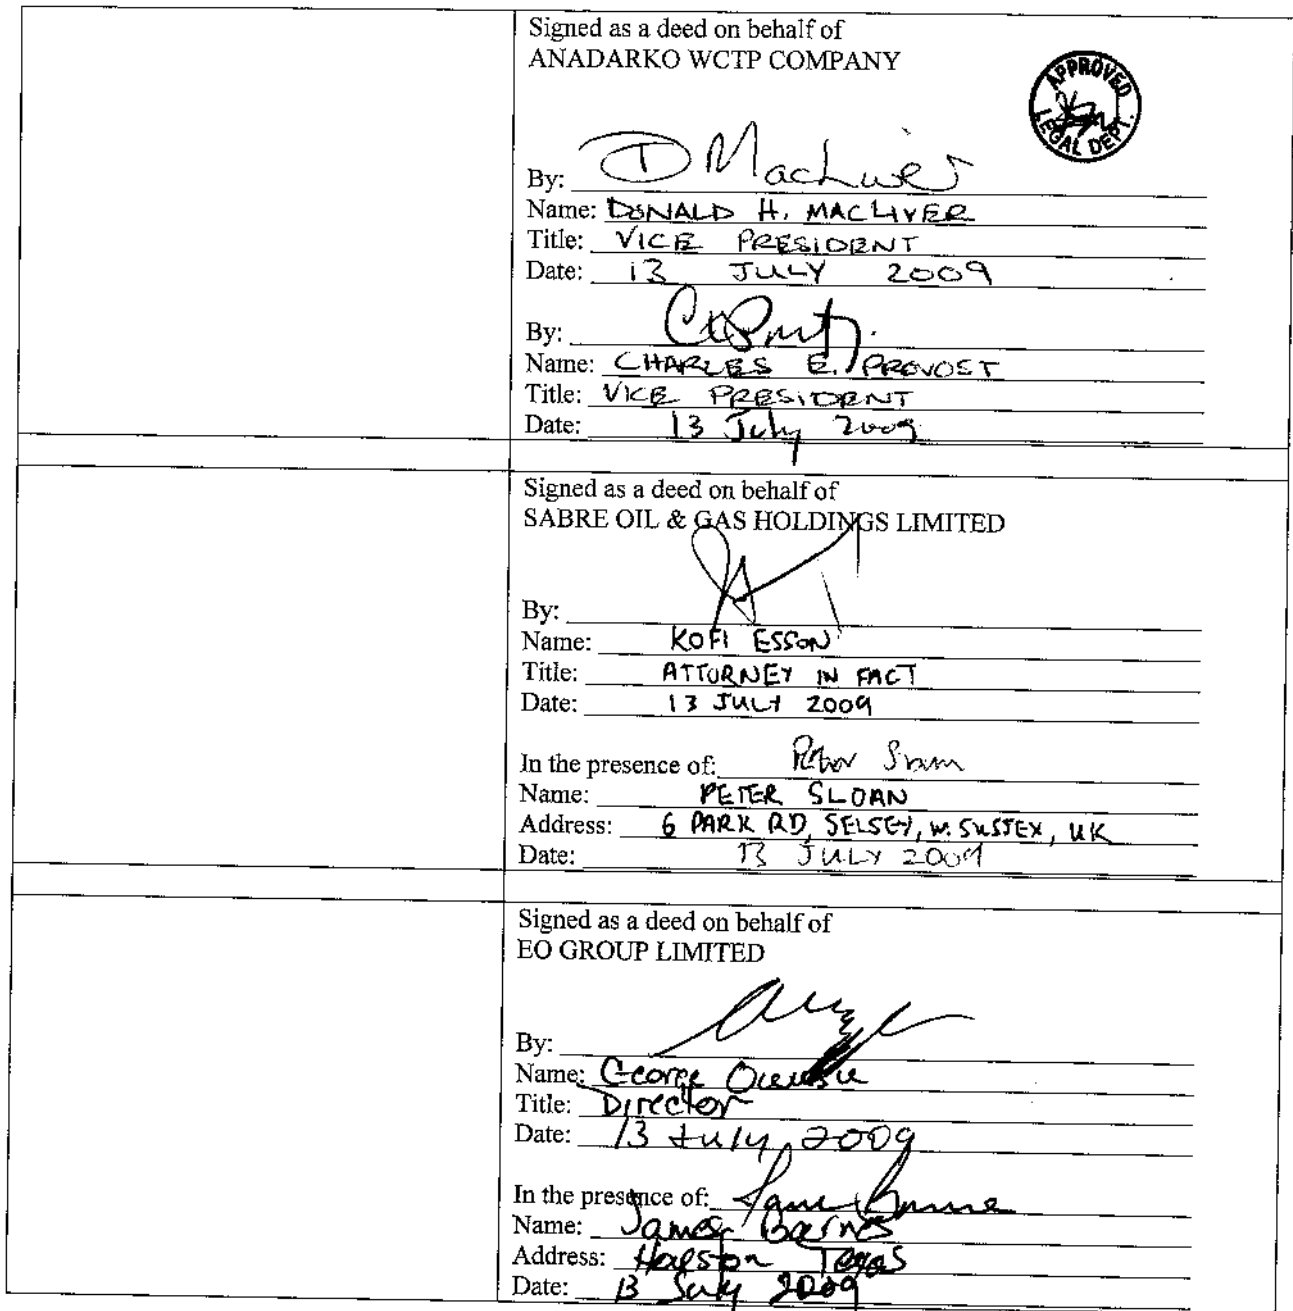 Signed as a deed on behalf of
ANADARKO WCTP COMPANY
APPROVED
LEGAL DEPT.
By: D MacLiver
Name: DONALD H. MACLIVER
Title: VICE PRESIDENT
Date: 13 JULY 2009
By:
Name: CHARLES E. PROVOST
Title: VICE PRESIDENT
Date: 13 July 2009
Signed as a deed on behalf of
SABRE OIL & GAS HOLDINGS LIMITED
By:
Name: KOFI ESSON
Title: ATTORNEY IN FACT
Date: 13 JULY 2009
In the presence of: Peter Sloan
Name: PETER SLOAN
Address: 6 PARK RD, SELSEY, W. SUSSEX, UK
Date: 13 JULY 2009
Signed as a deed on behalf of
EO GROUP LIMITED
By:
Name: George Owusu
Title: Director
Date: 13 July, 2009
In the presence of: James Barnes
Name: James Barnes
Address: Houston Texas
Date: 13 July 2009